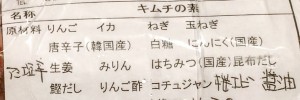 名称 キムチの素
原材料 りんご イカ ねぎ 玉ねぎ
唐辛子(韓国産) 白糖 にんにく(国産)
生姜 みりん はちみつ(国産) 昆布だし
鰹だし りんご酢 コチュジャン 醤油